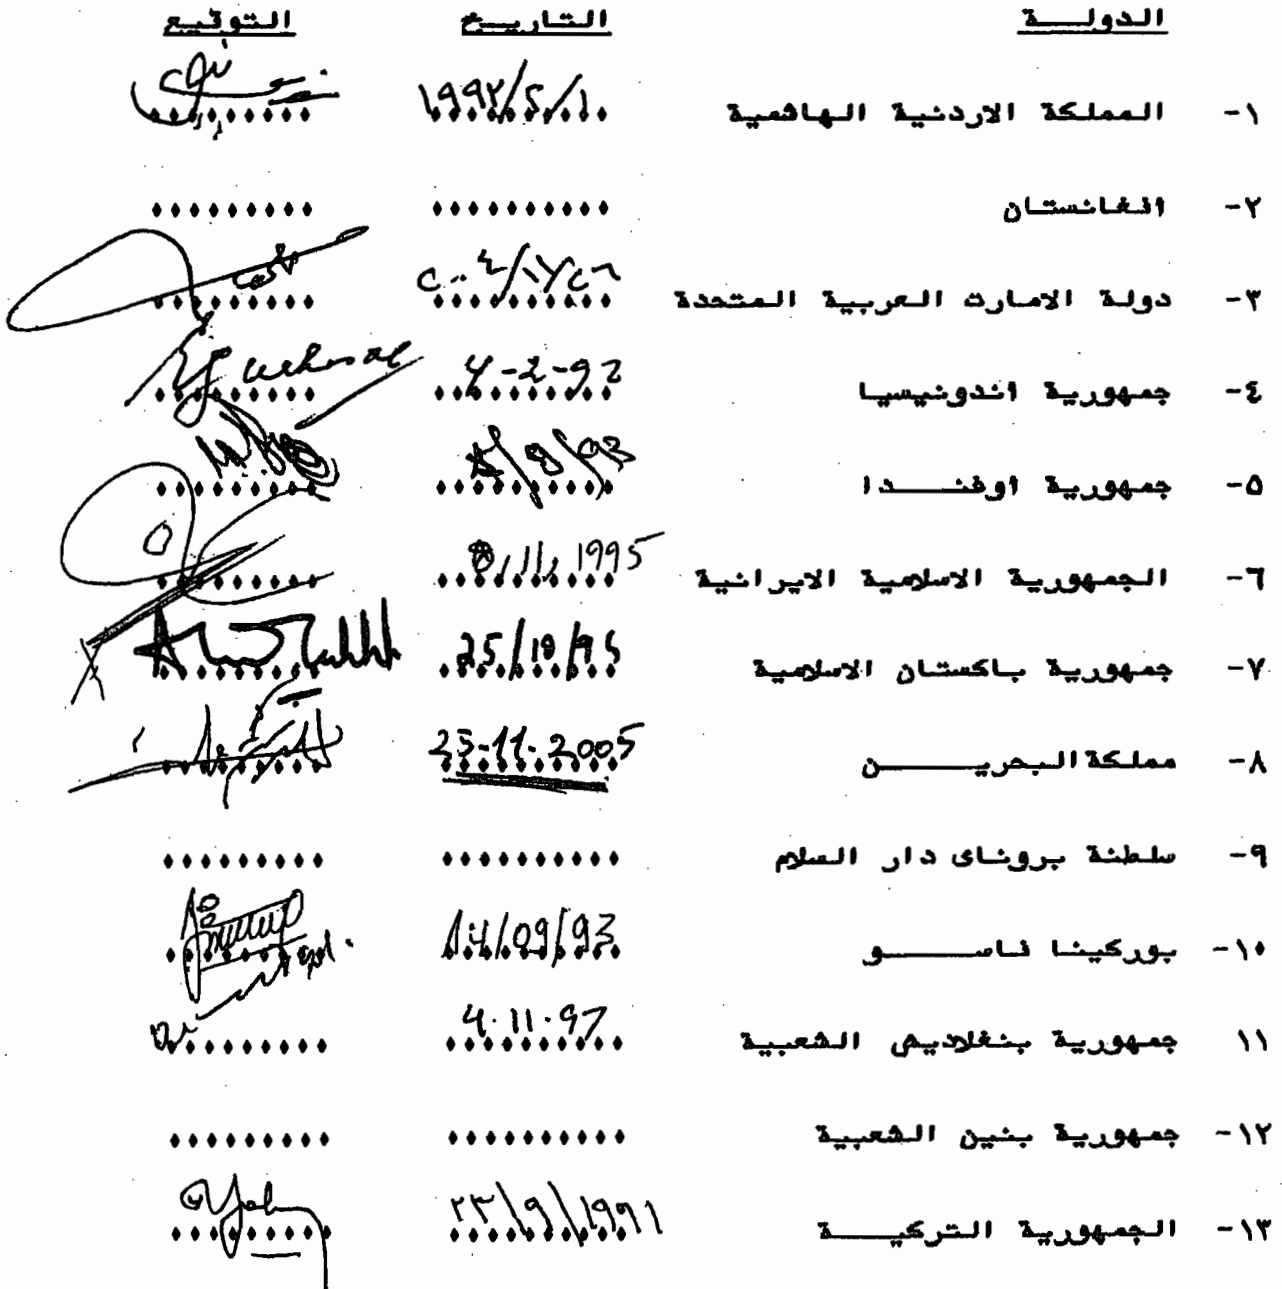 الدولة التاريخ التوقيع
١- المملكة الاردنية الهاشمية ١٩٩٢/٥/١
٢- افغانستان
٣- دولة الامارت العربية المتحدة
٤- جمهورية اندونيسيا 4-2-92
٥- جمهورية اوغندا 8/9/93
٦- الجمهورية الاسلامية الايرانية 11, 1995
٧- جمهورية باكستان الاسلامية 25/10/95
٨- مملكة البحرين 25-11-2005
٩- سلطنة بروناى دار السلام
١٠- بوركينا فاسو 14/09/93
١١ جمهورية بنغلاديش الشعبية 4.11.97
١٢- جمهورية بنين الشعبية
١٣- الجمهورية التركية ٢٣/٩/١٩٩١